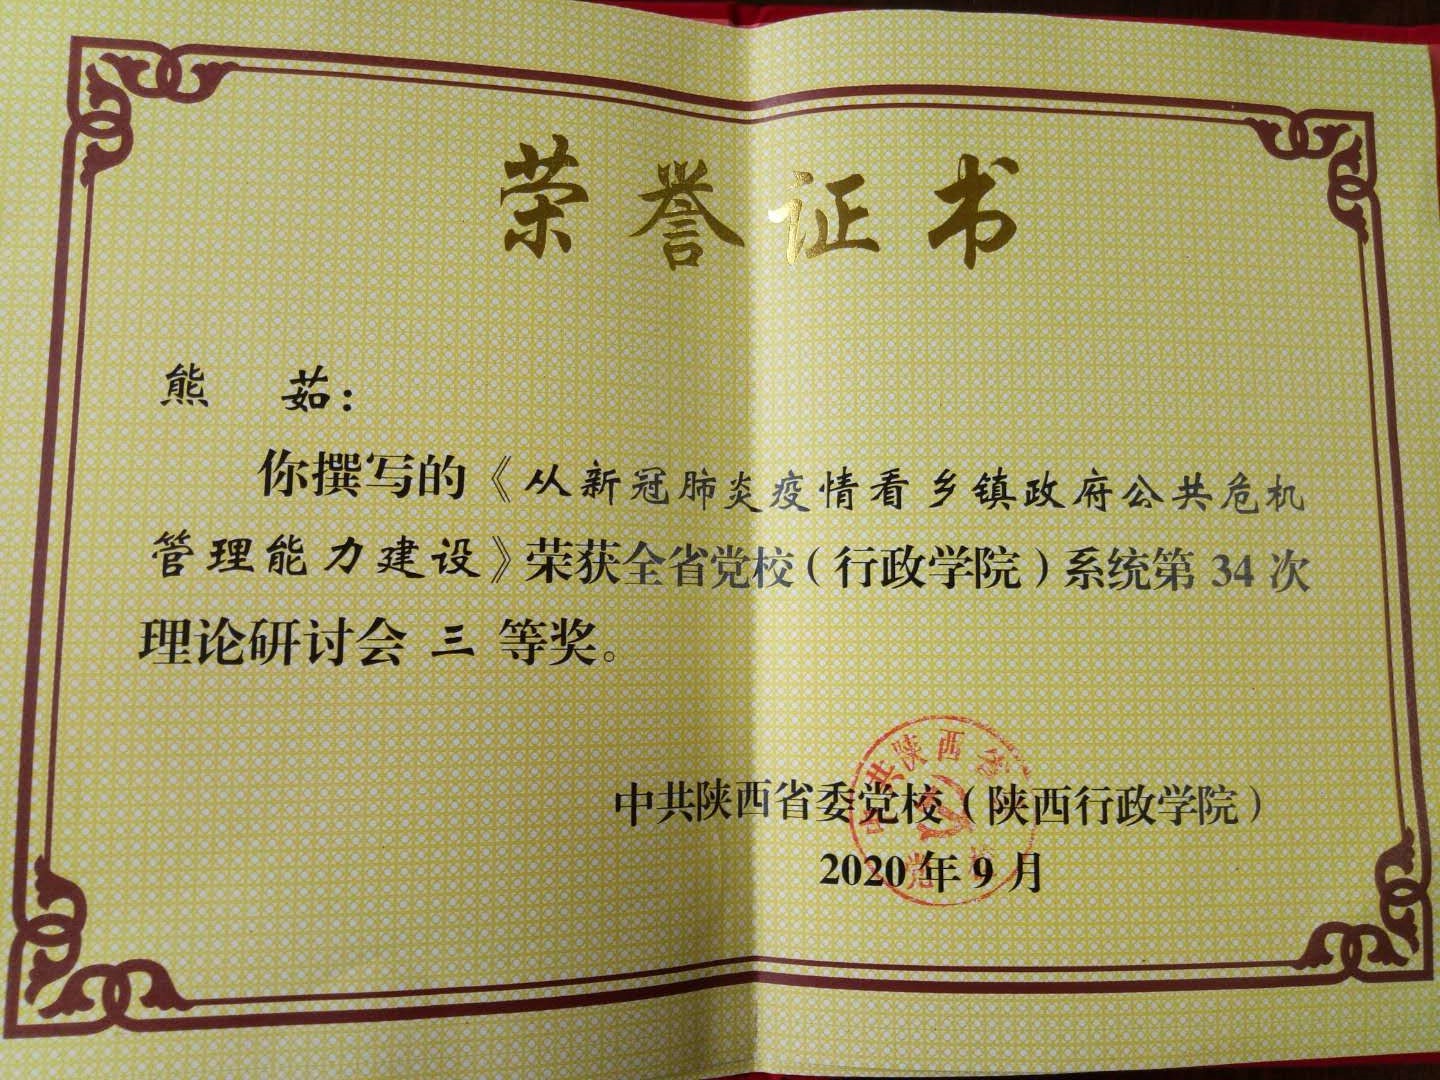 荣誉证书
熊 茹：
你撰写的《从新冠肺炎疫情看乡镇政府公共危机
管理能力建设》荣获全省党校（行政学院）系统第 34 次
理论研讨会 三 等奖。
中共陕西省委党校（陕西行政学院）
2020 年 9 月
中共陕西省
党